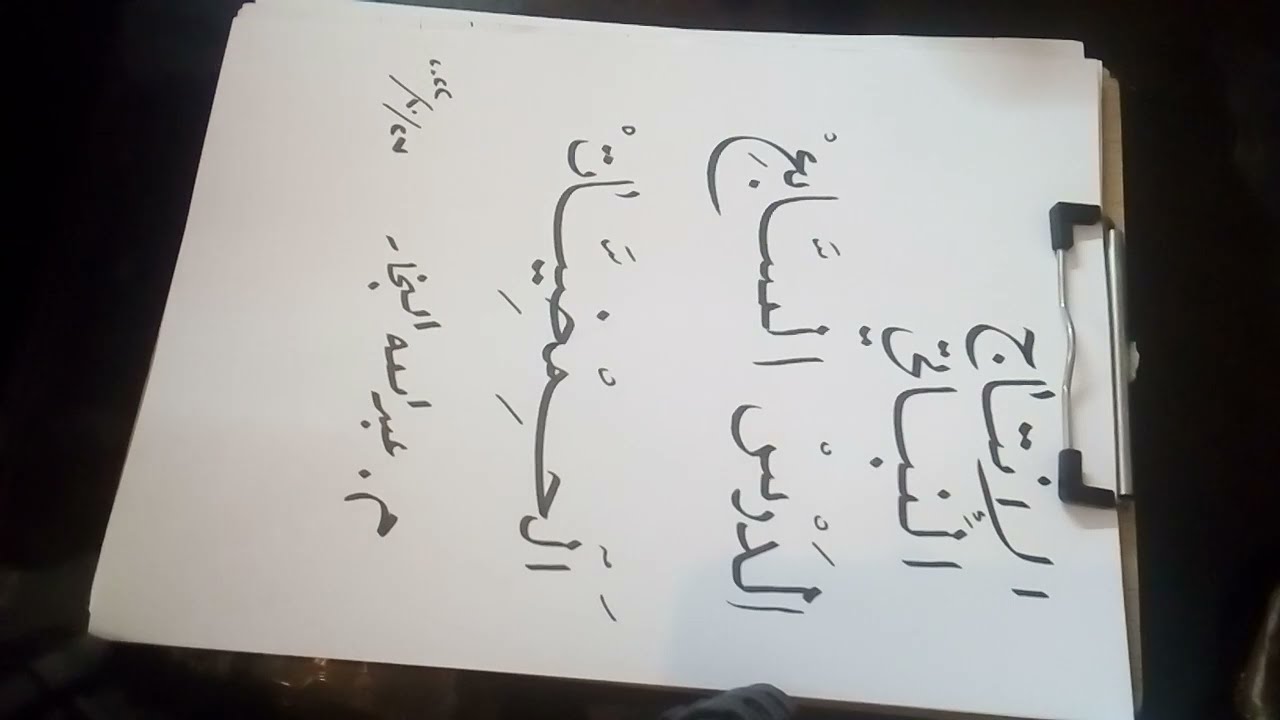 الإنتاج
النباتي
الدَرْسْ السَّابِعْ
الَحِمْضِيَّاتْ
م. عبد الله النجار
٢٠٢٢/١٠/٢٧